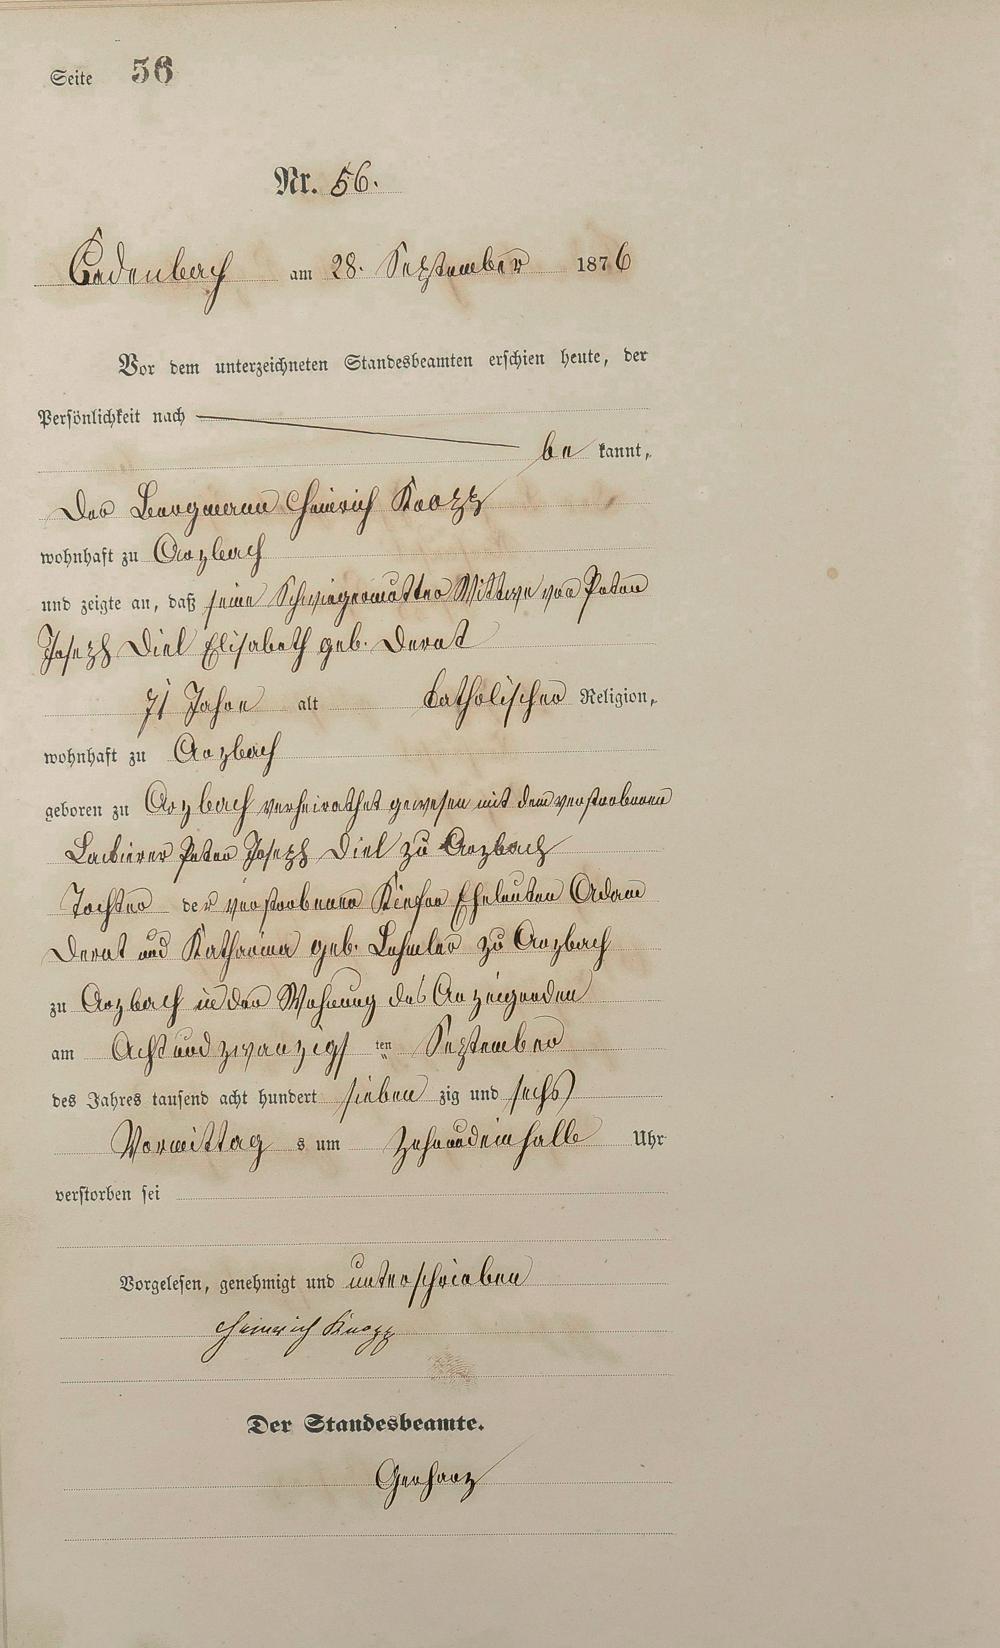 Seite 56
Nr. 56.
Cadenbach am 28. September 1876
Vor dem unterzeichneten Standesbeamten erschien heute, der
Persönlichkeit nach
be kannt,
Der Bergmann Heinrich Knopp
wohnhaft zu Arzbach
und zeigte an, daß seine Schwiegermutter Wittwe von Peter
Joseph Diel Elisabeth geb.
71 Jahre alt katholischer Religion,
wohnhaft zu Arzbach
geboren zu Arzbach verheirathet gewesen mit dem verstorbenen
Peter Joseph Diel zu Arzbach
Tochter der verstorbenen Eheleuten Adam
und Katharina geb. zu Arzbach
zu Arzbach in der Wohnung des Anzeigenden
am Acht und zwanzigs ten September
des Jahres tausend acht hundert sieben zig und sechs
Vormittag s um Zehnundeinhalb Uhr
verstorben sei
Vorgelesen, genehmigt und unterschrieben
Heinrich Knopp
Der Standesbeamte.
Gerharz